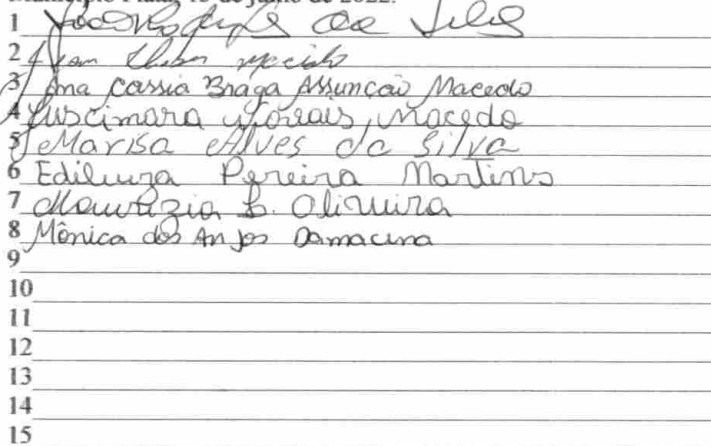 1 João Rodrigues da Silva
2 Macedo
3 Ana Cassia Braga Assunção Macedo
4 Luscimara Morais Macedo
5 Marisa Alves da Silva
6 Edileuza Pereira Martins
7 L. Oliveira
8 Mônica dos Anjos Damacena
9
10
11
12
13
14
15